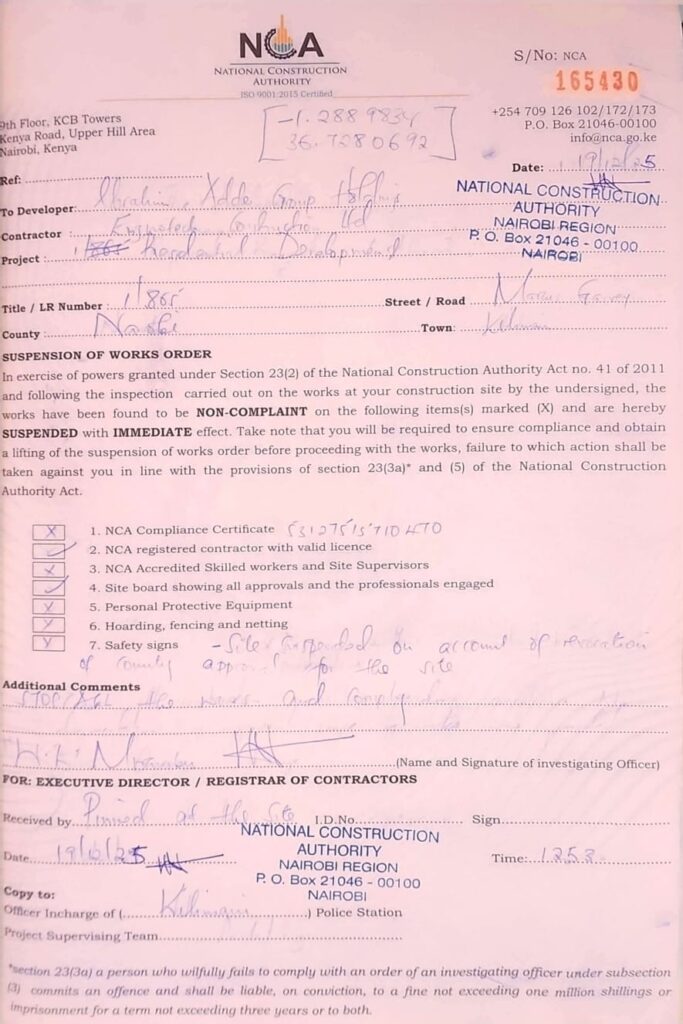 NCA
NATIONAL CONSTRUCTION
AUTHORITY
ISO 9001:2015 Certified
S/No: NCA
165430
9th Floor, KCB Towers
Kenya Road, Upper Hill Area
Nairobi, Kenya
+254 709 126 102/172/173
P.O. Box 21046-00100
info@nca.go.ke
36.7280692
Date:
Ref:
NATIONAL CONSTRUCTION
AUTHORITY
NAIROBI REGION
P. O. Box 21046 - 00100
NAIROBI
To Developer: Group
Contractor Construction Ltd
Project : Residential Development
Title / LR Number : 1/865
Street / Road
County : Nairobi
Town:
SUSPENSION OF WORKS ORDER
In exercise of powers granted under Section 23(2) of the National Construction Authority Act no. 41 of 2011
and following the inspection carried out on the works at your construction site by the undersigned, the
works have been found to be NON-COMPLAINT on the following items(s) marked (X) and are hereby
SUSPENDED with IMMEDIATE effect. Take note that you will be required to ensure compliance and obtain
a lifting of the suspension of works order before proceeding with the works, failure to which action shall be
taken against you in line with the provisions of section 23(3a)* and (5) of the National Construction
Authority Act.
X 1. NCA Compliance Certificate
✓ 2. NCA registered contractor with valid licence
X 3. NCA Accredited Skilled workers and Site Supervisors
✓ 4. Site board showing all approvals and the professionals engaged
X 5. Personal Protective Equipment
X 6. Hoarding, fencing and netting
X 7. Safety signs - Site suspended on account of revocation
of county approval for the site
Additional Comments
the works and
(Name and Signature of investigating Officer)
FOR: EXECUTIVE DIRECTOR / REGISTRAR OF CONTRACTORS
Received by Pinned at the site I.D.No. Sign
NATIONAL CONSTRUCTION
AUTHORITY
NAIROBI REGION
P. O. Box 21046 - 00100
NAIROBI
Date
Time:
Copy to:
Officer Incharge of ( Kilimani ) Police Station
Project Supervising Team
*section 23(3a) a person who wilfully fails to comply with an order of an investigating officer under subsection
(3) commits an offence and shall be liable, on conviction, to a fine not exceeding one million shillings or
imprisonment for a term not exceeding three years or to both.